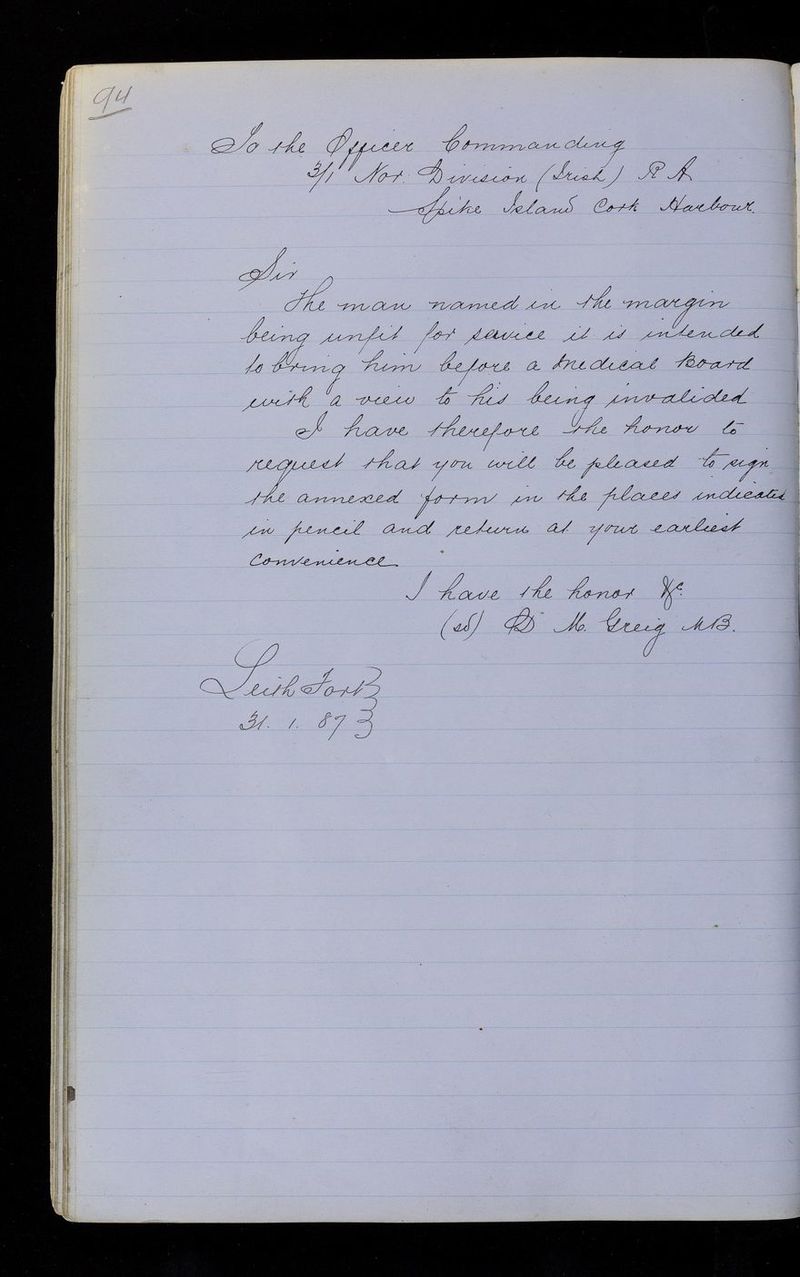 94
To the Officer Commanding
3/1 Nor. Division (Irish) R A
Spike Island Cork Harbour.
Sir
The man named in the margin
being unfit for service it is intended
to bring him before a Medical Board
with a view to his being invalided
I have therefore the honor to
request that you will be pleased to sign
the annexed form in the places indicated
in pencil and return at your earliest
convenience
I have the honor &c.
(sd) D M. Greig MB.
Leith Fort }
31. 1. 87 }